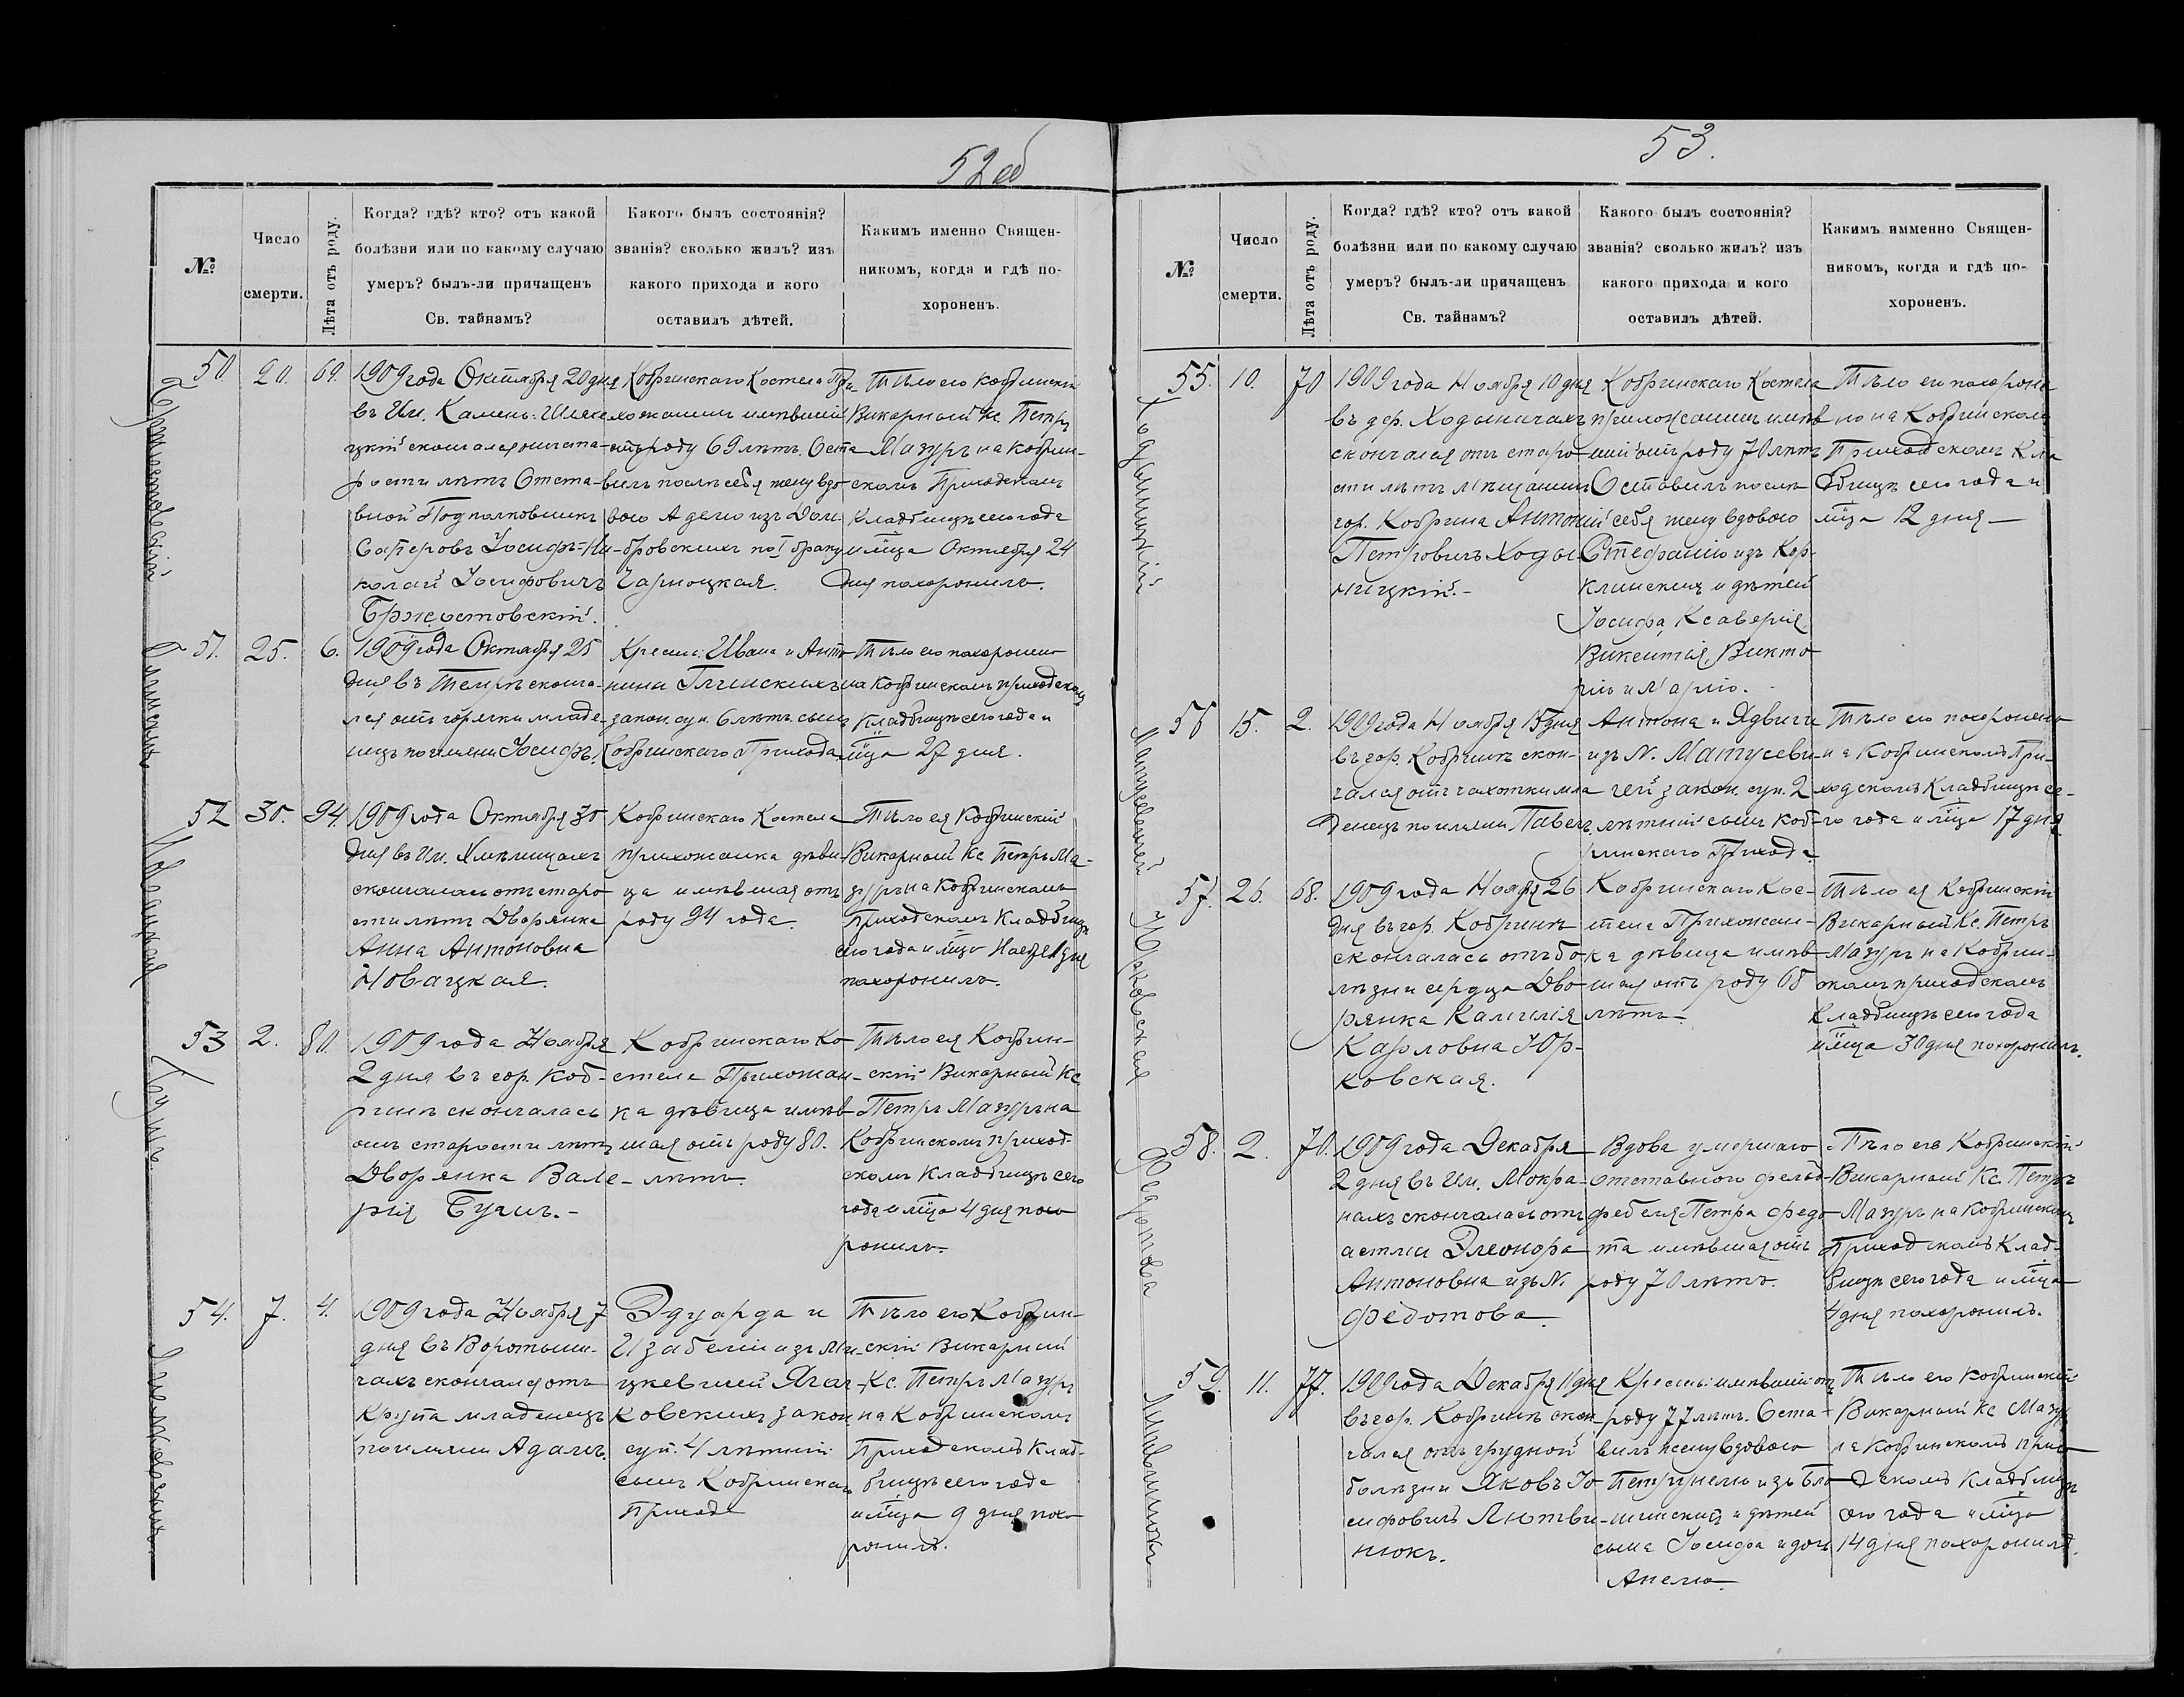 52 об
№
Число
смерти.
Лѣта отъ роду.
Когда? гдѣ? кто? отъ какой
болѣзни или по какому случаю
умеръ? былъ-ли причащенъ
Св. тайнамъ?
Какого былъ состоянія?
званія? сколько жилъ? изъ
какого прихода и кого
оставилъ дѣтей.
Какимъ именно Священ-
никомъ, когда и гдѣ по-
хороненъ.
50.
20.
69.
1909 года Октября 20 дня
въ Им. Камень-
скончался отъ ста-
рости лѣтъ Отста-
вной Подполковникъ
Саперовъ Іосифъ-Ни-
колай Іосифовичъ
Бржостовскій.
Кобринскаго Костела При-
хожанинъ имѣвшій
отъ роду 69 лѣтъ. Оста-
вилъ послѣ себя жену вдо-
вою Аделю изъ Дом-
бровскихъ по I браку
Чарноцкая.
Тѣло его Кобринскій
Викарный Кс. Петръ
Мазуръ на Кобрин-
скомъ Приходскомъ
Кладбищѣ сего года
и м̃ца Октября 24
дня похоронилъ.
51.
25.
6.
1909 года Октября 25
дня въ сконча-
лся отъ горячки младе-
нецъ по имени Іосифъ.
Крестьянъ: Ивана и Анто-
нины Глинскихъ
закон. суп. 6 лѣтъ. сынъ
Кобринскаго Прихода
Тѣло его похоронено
на Кобринскомъ приходском
Кладбищѣ сего года и
м̃ца 27 дня.
52
30.
94.
1909 года Октября 30
дня въ Им.
скончалась отъ старо-
сти лѣтъ Дворянка
Анна Антоновна
Новацкая.
Кобринскаго Костела
прихожанка дѣви-
ца имѣвшая отъ
роду 94 года.
Тѣло ея Кобринскій
Викарный Кс Петръ Ма-
зуръ на Кобринскомъ
приходскомъ Кладбищѣ
сего года и м̃ца Ноября 1 дня
похоронилъ.
53
2.
80.
1909 года Ноября
2 дня въ гор. Коб-
ринѣ скончалась
отъ старости лѣтъ
Дворянка Вале-
рія
Кобринскаго Ко-
стела Прихожан-
ка дѣвица имѣв-
шая отъ роду 80.
лѣтъ.
Тѣло ея Кобрин-
скій Викарный Кс
Петръ Мазуръ на
Кобринскомъ приход-
скомъ Кладбищѣ сего
года и м̃ца 4 дня похо
ронилъ.
54.
7.
4.
1909 года Ноября 7
дня въ Воротыни-
чахъ скончался отъ
Крупа младенецъ
по имени Адамъ.
Эдуарда и
Изабеліи изъ Ми-
цкевичей
ковскихъ закон
суп. 4 лѣтній
сынъ Кобринскаго
Прихода
Тѣло его Кобрин-
скій Викарный
Кс. Петръ Мазуръ
на Кобринскомъ
Приходскомъ Клад-
бищѣ сего года
и м̃ца 9 дня похо
ронилъ.
Бржостовскій
Глинскій
Новацкая
53.
№
Число
смерти.
Лѣта отъ роду.
Когда? гдѣ? кто? отъ какой
болѣзни или по какому случаю
умеръ? былъ-ли причащенъ
Св. тайнамъ?
Какого былъ состоянія?
званія? сколько жилъ? изъ
какого прихода и кого
оставилъ дѣтей.
Какимъ имменно Священ-
никомъ, когда и гдѣ по-
хороненъ.
55.
10.
70
1909 года Ноября 10 дня
въ дер. Ходыничахъ
скончался отъ старо-
сти лѣтъ Мѣщанинъ
гор. Кобрина Антоній
Петровичъ Ходы
ницкій.-
Кобринскаго Костела
прихожанинъ имѣв
шій отъ роду 70 лѣтъ
Оставилъ послѣ
себя жену вдовою
Стефанію изъ
и дѣтей
Іосифа, Ксаверія,
Викентія, Викто
рію и Марію.
Тѣло его похороне
но на Кобринскомъ
Приходскомъ Кла
дбищѣ сего года и
м̃ца 12 дня
56
15.
2.
1909 года Ноября 15 дня
въ гор. Кобринѣ скон-
чался отъ чахотки мла
денецъ по имени Павелъ
Антона и Ядвиги
изъ N. Матусеви-
чей закон. суп. 2
лѣтній сынъ Коб-
ринскаго Прихода
Тѣло его похоронено
на Кобринскомъ При-
ходскомъ Кладбищѣ се-
го года и м̃ца 17 дня
57.
26.
68.
1909 года Ноября 26
дня въ гор. Кобринѣ
скончалась отъ бо
лѣзни сердца Дво-
рянка Камилія
Карловна Юр-
ковская.
Кобринскаго Кос-
тела Прихожан-
ка дѣвица имѣв-
шая отъ роду 68
лѣтъ.
Тѣло ея Кобринскій
Викарный Кс. Петръ
Мазуръ на Кобрин-
скомъ приходскомъ
Кладбищѣ сего года
и м̃ца 30 дня похоронилъ.
58.
2.
70.
1909 года Декабря
2 дня въ Им. Мокра-
нахъ скончалась отъ
астмы Элеонора
Антоновна изъ N.
Федотова.
Вдова умершаго
отставного фельд-
фебеля Петра Федо
та имѣвшая отъ
роду 70 лѣтъ.
Тѣло его Кобринскій
Викарный Кс. Петръ
Мазуръ на Кобринскомъ
Приходскомъ Клад-
бищѣ сего года и м̃ца
4 дня похоронилъ.
59.
11.
77.
1909 года Декабря 11 дня
въ гор. Кобринѣ скон-
чался отъ грудной
болѣзни Яковъ Іо-
сифовичъ Лютви-
нюкъ.
Крестьян: имѣвшій отъ
роду 77 лѣтъ. Оста-
вилъ жену вдовою
Петрунелю изъ
и дѣтей
сына Іосифа и дочь
Анелю
Тѣло его Кобринскій
Викарный Кс Мазуръ
на Кобринскомъ прихо
дскомъ Кладбищѣ
сего года и м̃ца
14 дня похоронилъ.
Ходыницкій
Матусевичъ
Юрковская
Федотова